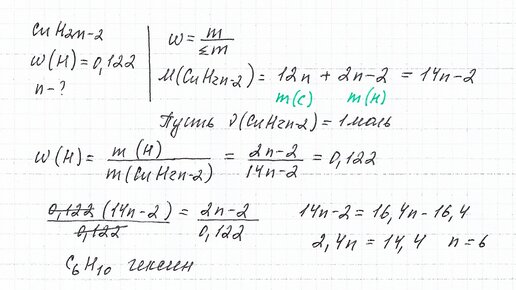 CnH2n-2
w(H) = 0,122
n - ?
w = m / Σm
M(CnH2n-2) = 12n + 2n-2 = 14n-2
m(C) m(H)
Пусть ν(CnH2n-2) = 1 моль
w(H) = m(H) / m(CnH2n-2) = 2n-2 / 14n-2 = 0,122
0,122 (14n-2) / 0,122 = 2n-2 / 0,122
14n-2 = 16,4n - 16,4
2,4n = 14,4 n=6
C6H10 гексин